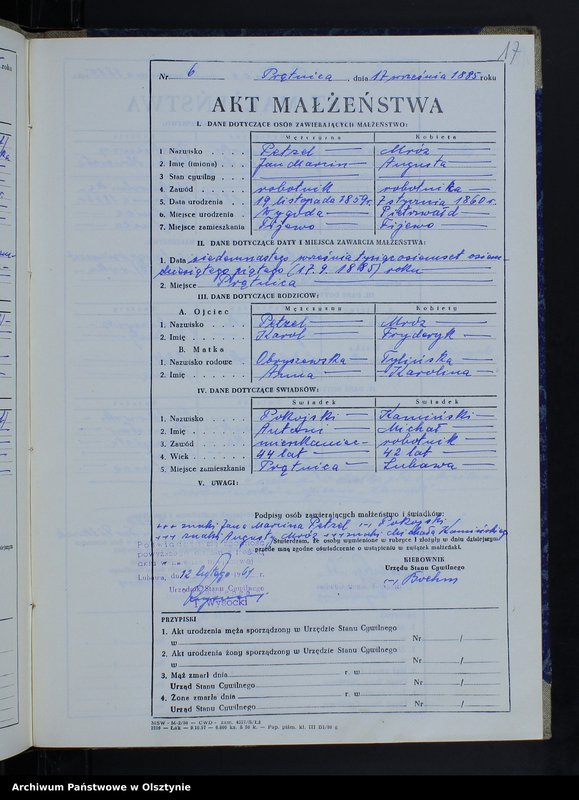 17
Nr. 6 Prątnica, dnia 17 września 1885 roku
AKT MAŁŻEŃSTWA
I. DANE DOTYCZĄCE OSÓB ZAWIERAJĄCYCH MAŁŻEŃSTWO:
Mężczyzna Kobieta
1. Nazwisko Petzel Mróz
2. Imię (imiona) Jan Marcin Augusta
3. Stan cywilny
4. Zawód robotnik robotnika
5. Data urodzenia 19 listopada 1859 r. 7 stycznia 1860 r.
6. Miejsce urodzenia Wygoda Pietrwałd
7. Miejsce zamieszkania Fijewo Fijewo
II. DANE DOTYCZĄCE DATY I MIEJSCA ZAWARCIA MAŁŻEŃSTWA:
1. Data siedemnastego września tysiąc osiemset osiem-
dziesiątego piątego (17.9.1885) roku
2. Miejsce Prątnica
III. DANE DOTYCZĄCE RODZICÓW:
Mężczyzny Kobiety
A. Ojciec
1. Nazwisko Petzel Mróz
2. Imię Karol Fryderyk
B. Matka
1. Nazwisko rodowe Obryszewska Tylińska
2. Imię Anna Karolina
IV. DANE DOTYCZĄCE ŚWIADKÓW:
Świadek Świadek
1. Nazwisko Pokojski Kamiński
2. Imię Antoni Michał
3. Zawód mieszkaniec robotnik
4. Wiek 44 lat 42 lat
5. Miejsce zamieszkania Prątnica Lubawa
V. UWAGI:
Podpisy osób zawierających małżeństwo i świadków:
+++ znaki Jana Marcina Petzel /-/ Pokojski
+++ znaki Augusty Mróz +++ znaki Michała Kamińskiego
Stwierdzam, że osoby wymienione w rubryce I złożyły w dniu dzisiejszym
przede mną zgodne oświadczenie o wstąpieniu w związek małżeński.
KIEROWNIK
Urzędu Stanu Cywilnego
/-/ Boehm
Lubawa, dn. 12 lutego 1961 r.
Urzędu Stanu Cywilnego
Wysocki
PRZYPISKI
1. Akt urodzenia męża sporządzony w Urzędzie Stanu Cywilnego
w Nr /
2. Akt urodzenia żony sporządzony w Urzędzie Stanu Cywilnego
w Nr /
3. Mąż zmarł dnia r. w
Urząd Stanu Cywilnego Nr /
4. Żona zmarła dnia r. w
Urząd Stanu Cywilnego Nr /
Archiwum Państwowe w Olsztynie